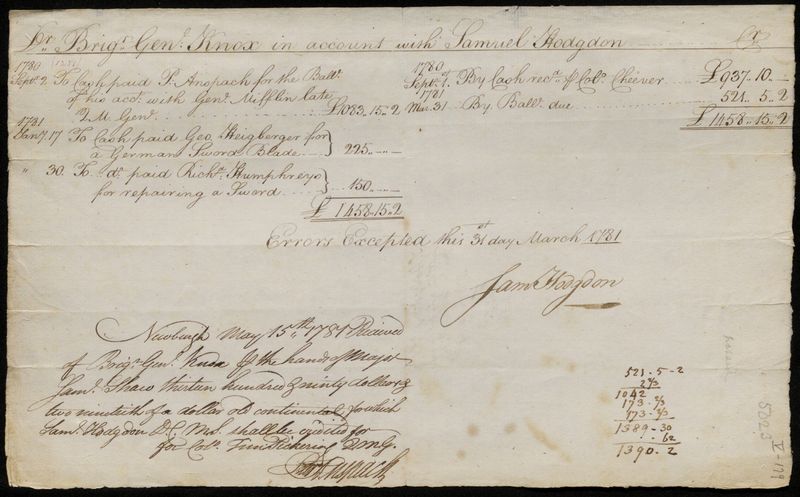 Dr. Brigr. Genl. Knox in account with Samuel Hodgdon Cr
1780
Septr. 2 To Cash paid P. Anspach for the Ballc.
of his acct. with Genl. Mifflin late
Q M Genl. £1083..15..2
1781
Jany. 17 To Cash paid Geo. Heigberger for
a German Sword Blade 225..
" 30. To do. paid Richd. Humphreys
for repairing a Sword 150
£ 1458..15..2
1780
Septr. 1st. By Cash recd. of Colo. Cheever £937..10..
1781
Mar. 31 By Ballc. due 521..5..2
£ 1458..15..2
Errors Excepted this 31st day March 1781
Saml Hodgdon
Newburgh May 15th. 1781 Recieved
of Brigr. Genl. Knox by the hands of Major
Saml. Shaw thirteen hundred & ninty dollars &
two ninetieth of a dollar old continental for which
Saml. Hodgdon D C M S. shall be credited for
for Colo. Tim Pickering Q M G.
Peter Anspach
521 - 5 - 2
2 2/3
1042
173 - 2/3
173 - 2/3
1389 - 30
62
1390 - 2
5023
V-179